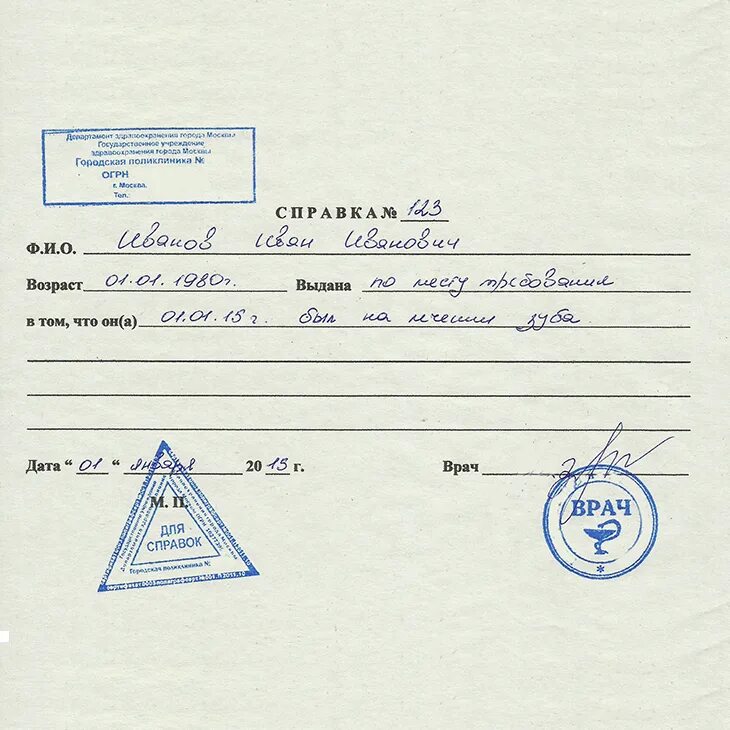 Департамент здравоохранения города Москвы
Государственное учреждение
здравоохранения города Москвы
Городская поликлиника №
ОГРН
г. Москва.
Тел.:
СПРАВКА № 123
Ф.И.О. Иванов Иван Иванович
Возраст 01.01.1980г. Выдана по месту требования
в том, что он(а) 01.01.15 г. был на лечении зуба
Дата “ 01 “ января 20 15 г. Врач
М. П.
ДЛЯ
СПРАВОК
Городская поликлиника №
ВРАЧ